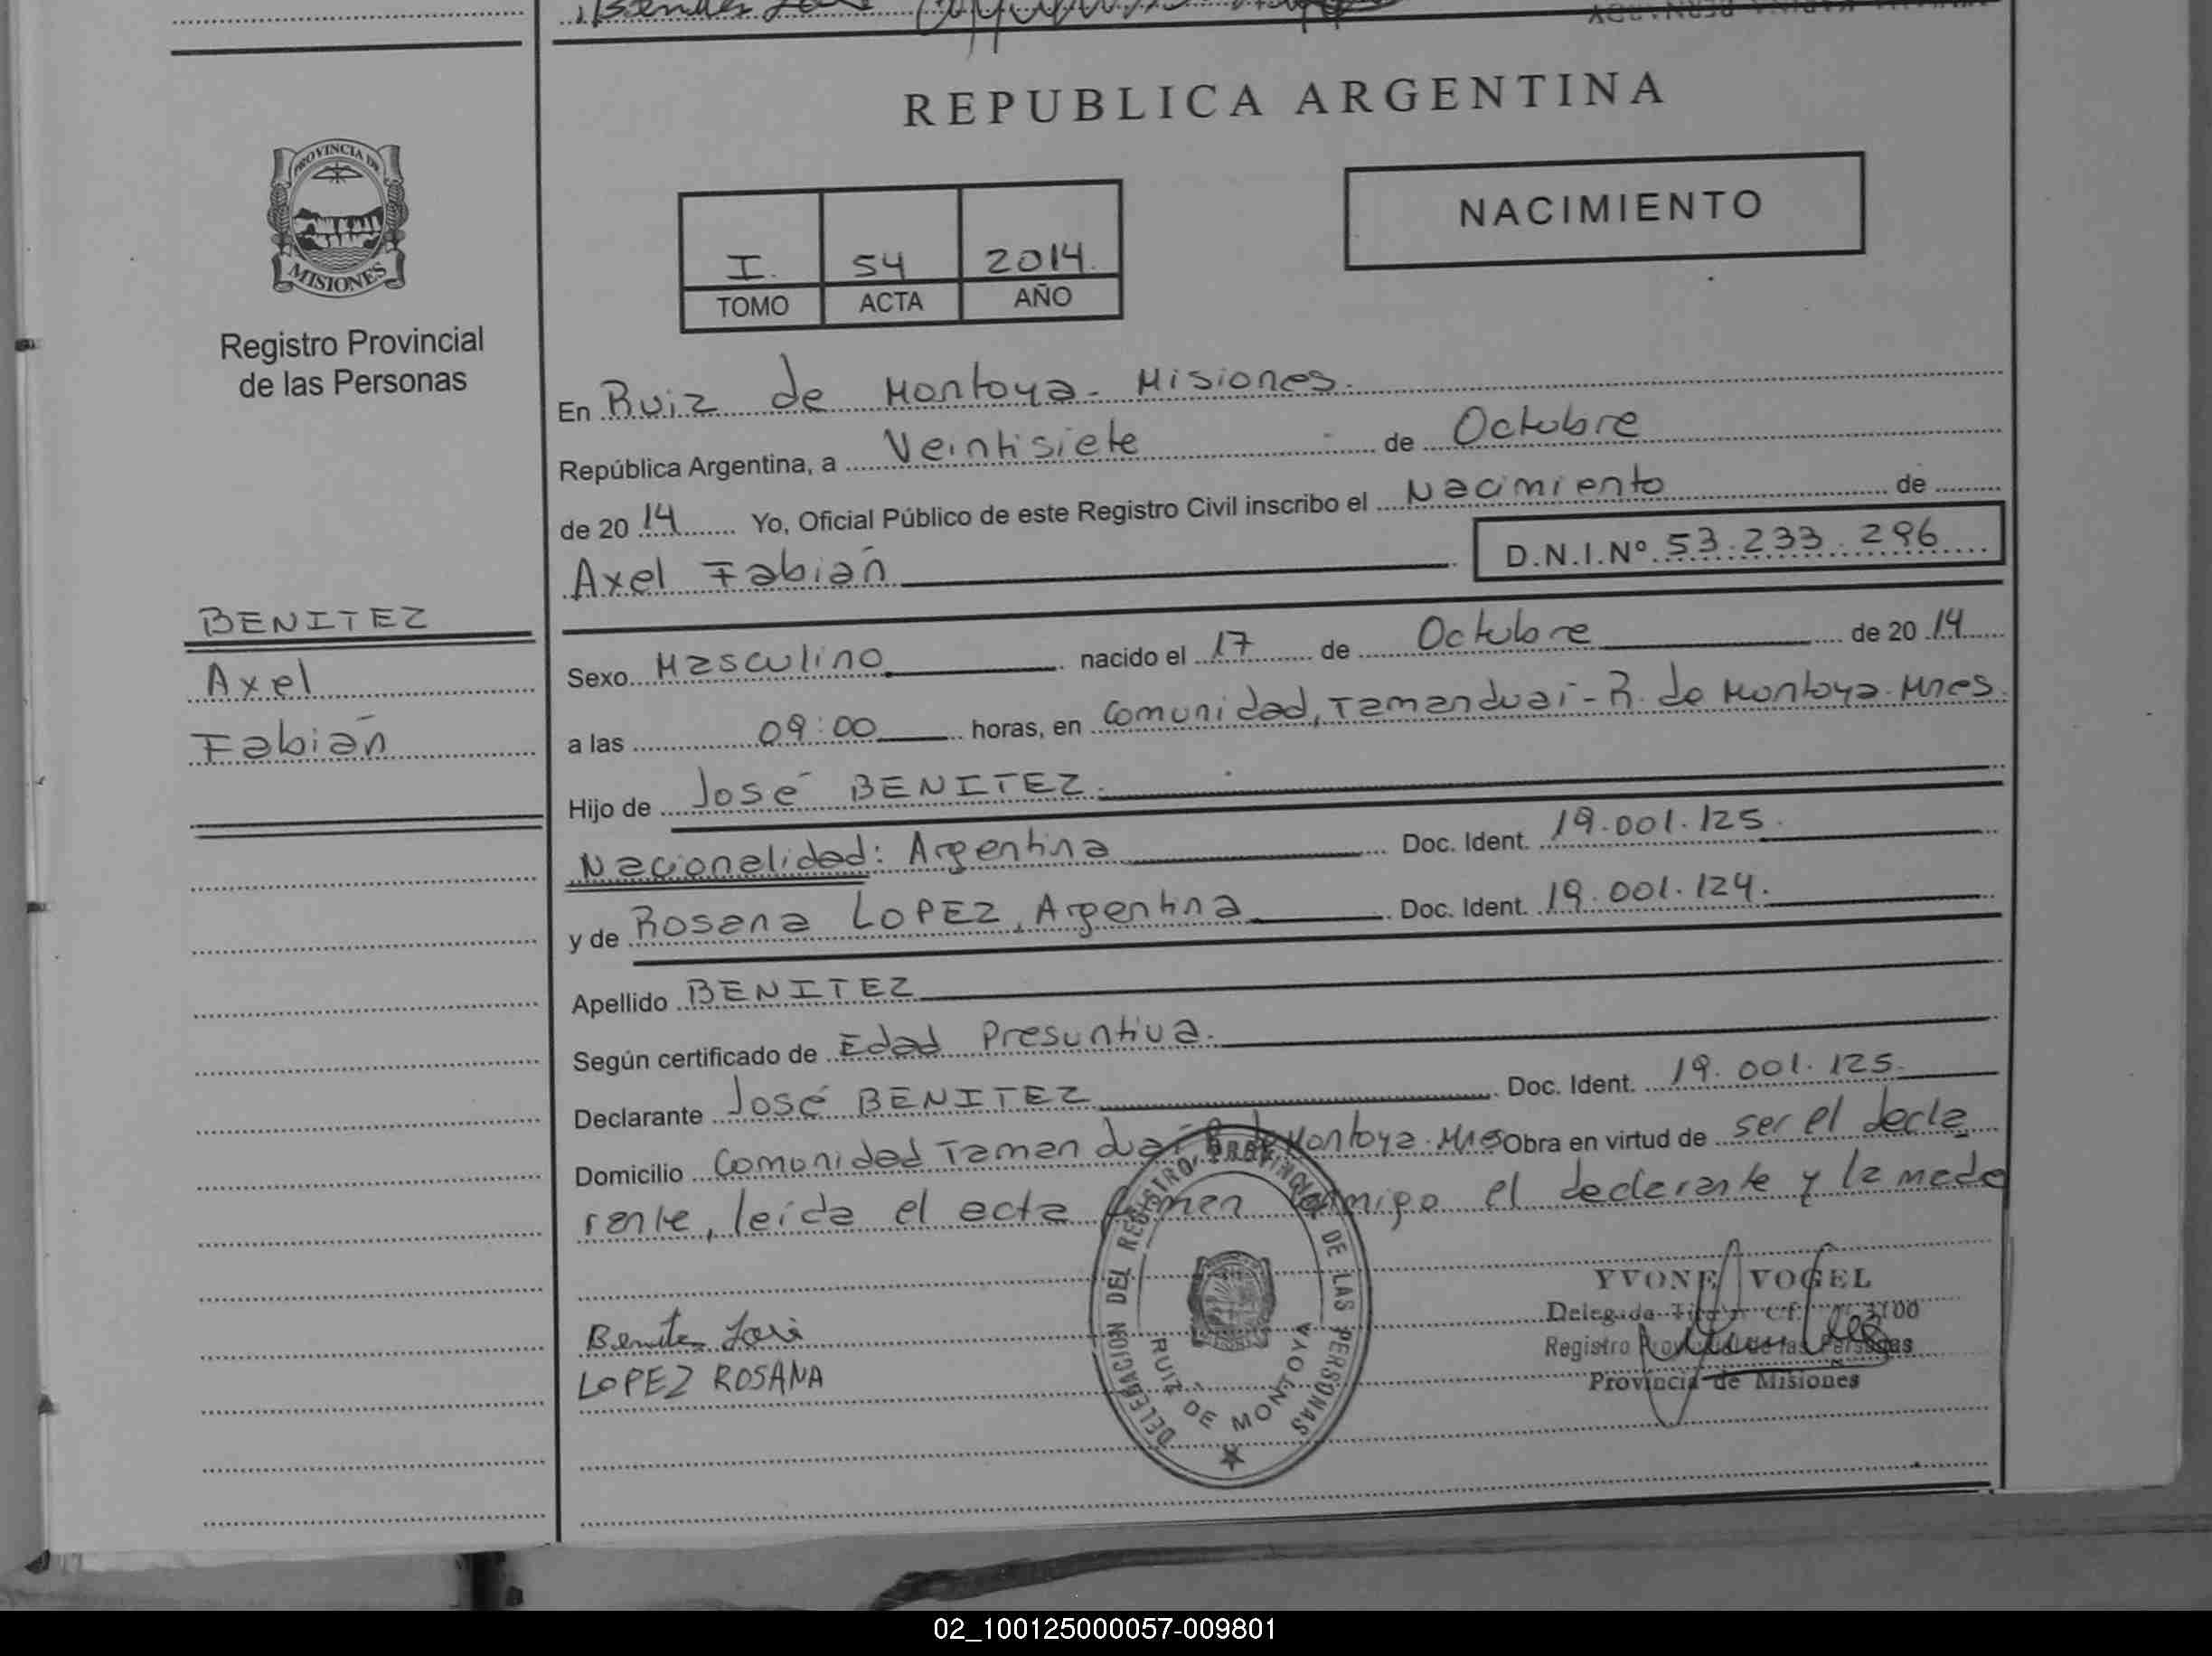 REPUBLICA ARGENTINA
PROVINCIA DE
MISIONES
Registro Provincial
de las Personas
NACIMIENTO
I. 54 2014.
TOMO ACTA AÑO
En Ruiz de Montoya - Misiones.
República Argentina, a Veintisiete de Octubre
de 20 14 Yo, Oficial Público de este Registro Civil inscribo el Nacimiento de
Axel Fabián D.N.I.Nº 53.233.296
BENITEZ
Axel
Fabián
Sexo Masculino nacido el 17 de Octubre de 20 14
a las 09:00 horas, en Comunidad, Tamanduaí - R. de Montoya. Mnes.
Hijo de José BENITEZ.
Nacionalidad: Argentina Doc. Ident. 19.001.125.
y de Rosana LOPEZ, Argentina Doc. Ident. 19.001.124.
Apellido BENITEZ
Según certificado de Edad Presuntiva.
Declarante José BENITEZ Doc. Ident. 19.001.125.
Domicilio Comunidad Tamanduaí R. de Montoya. Mnes Obra en virtud de ser el decla
rante, leída el acta firman conmigo el declarante y la madre
Benitez José
LOPEZ ROSANA
DELEGACION DEL REGISTRO PROVINCIAL DE LAS PERSONAS
RUIZ DE MONTOYA
YVONE VOGEL
Delegada
Registro Provincial de las Personas
Provincia de Misiones
02_100125000057-009801